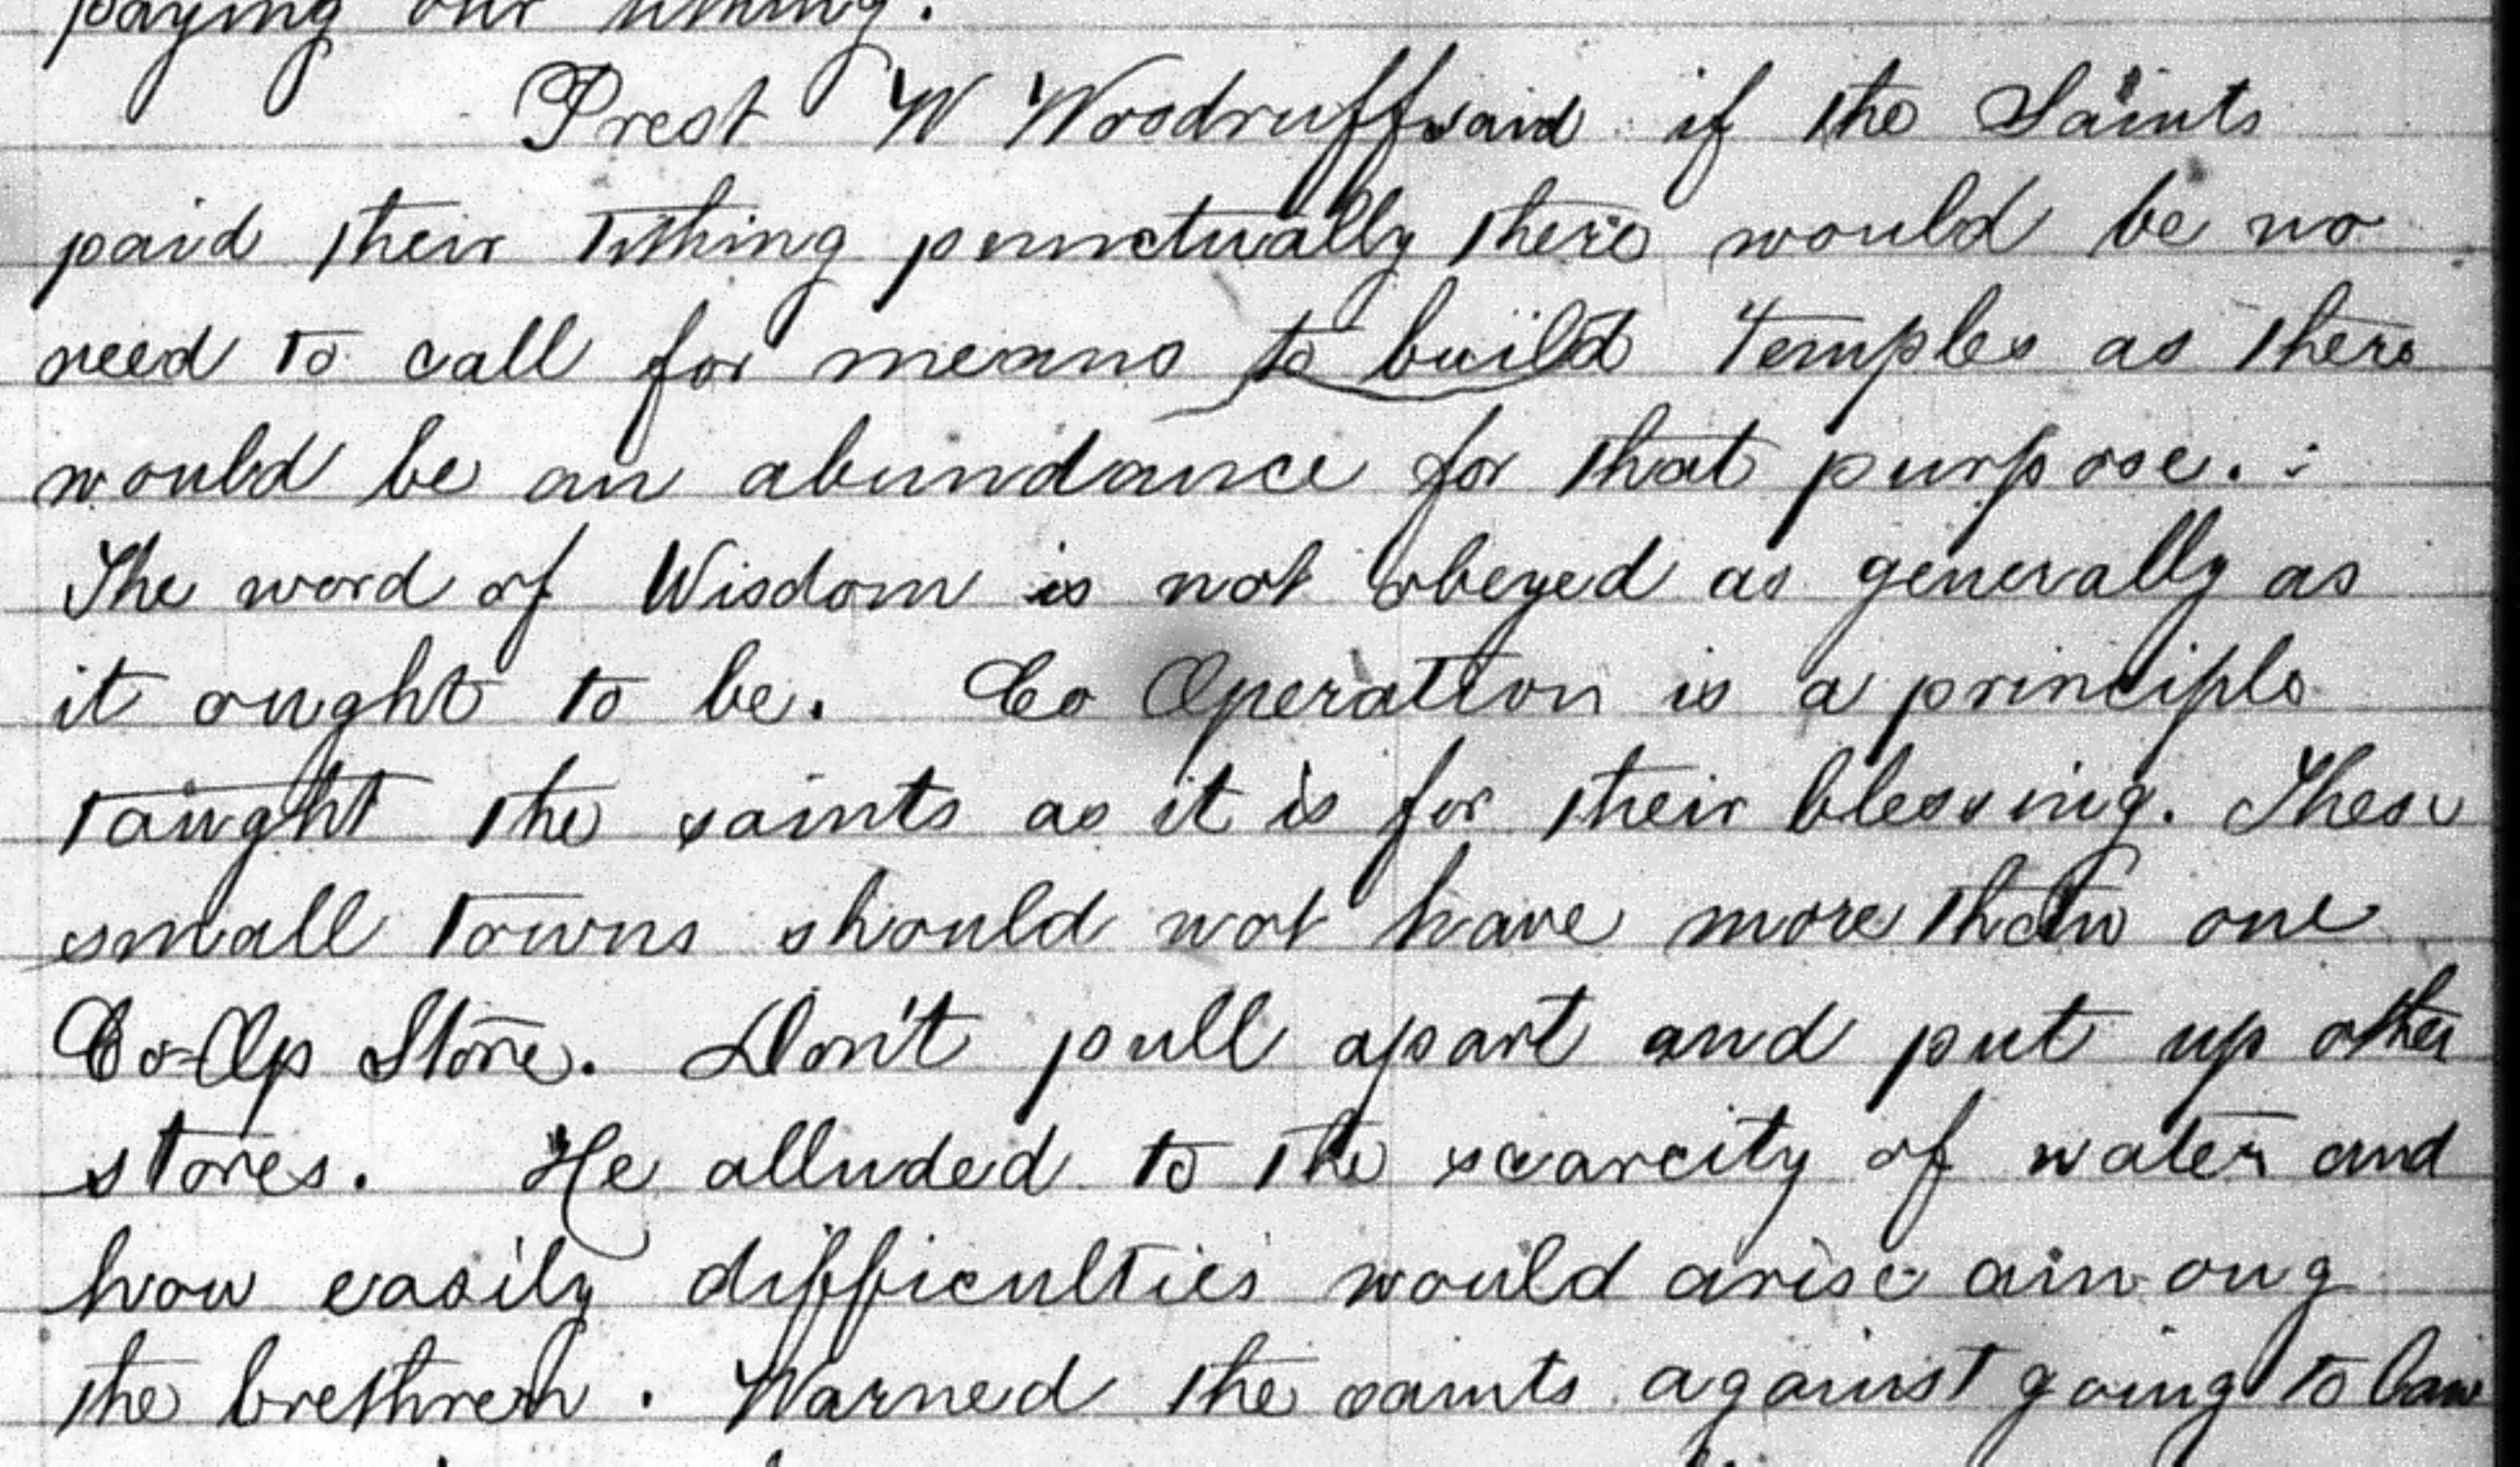 paying our tithing.
Prest W Woodruff said if the Saints
paid their Tithing punctually there would be no
need to call for means to build Temples as there
would be an abundance for that purpose. :
The word of Wisdom is not obeyed as generally as
it ought to be. Co Operation is a principle
taught the saints as it is for their blessing. These
small towns should not have more than one
Co-Op Store. Don't pull apart and put up other
stores. He alluded to the scarcity of water and
how easily difficulties would arise among
the brethren. Warned the saints against going to law